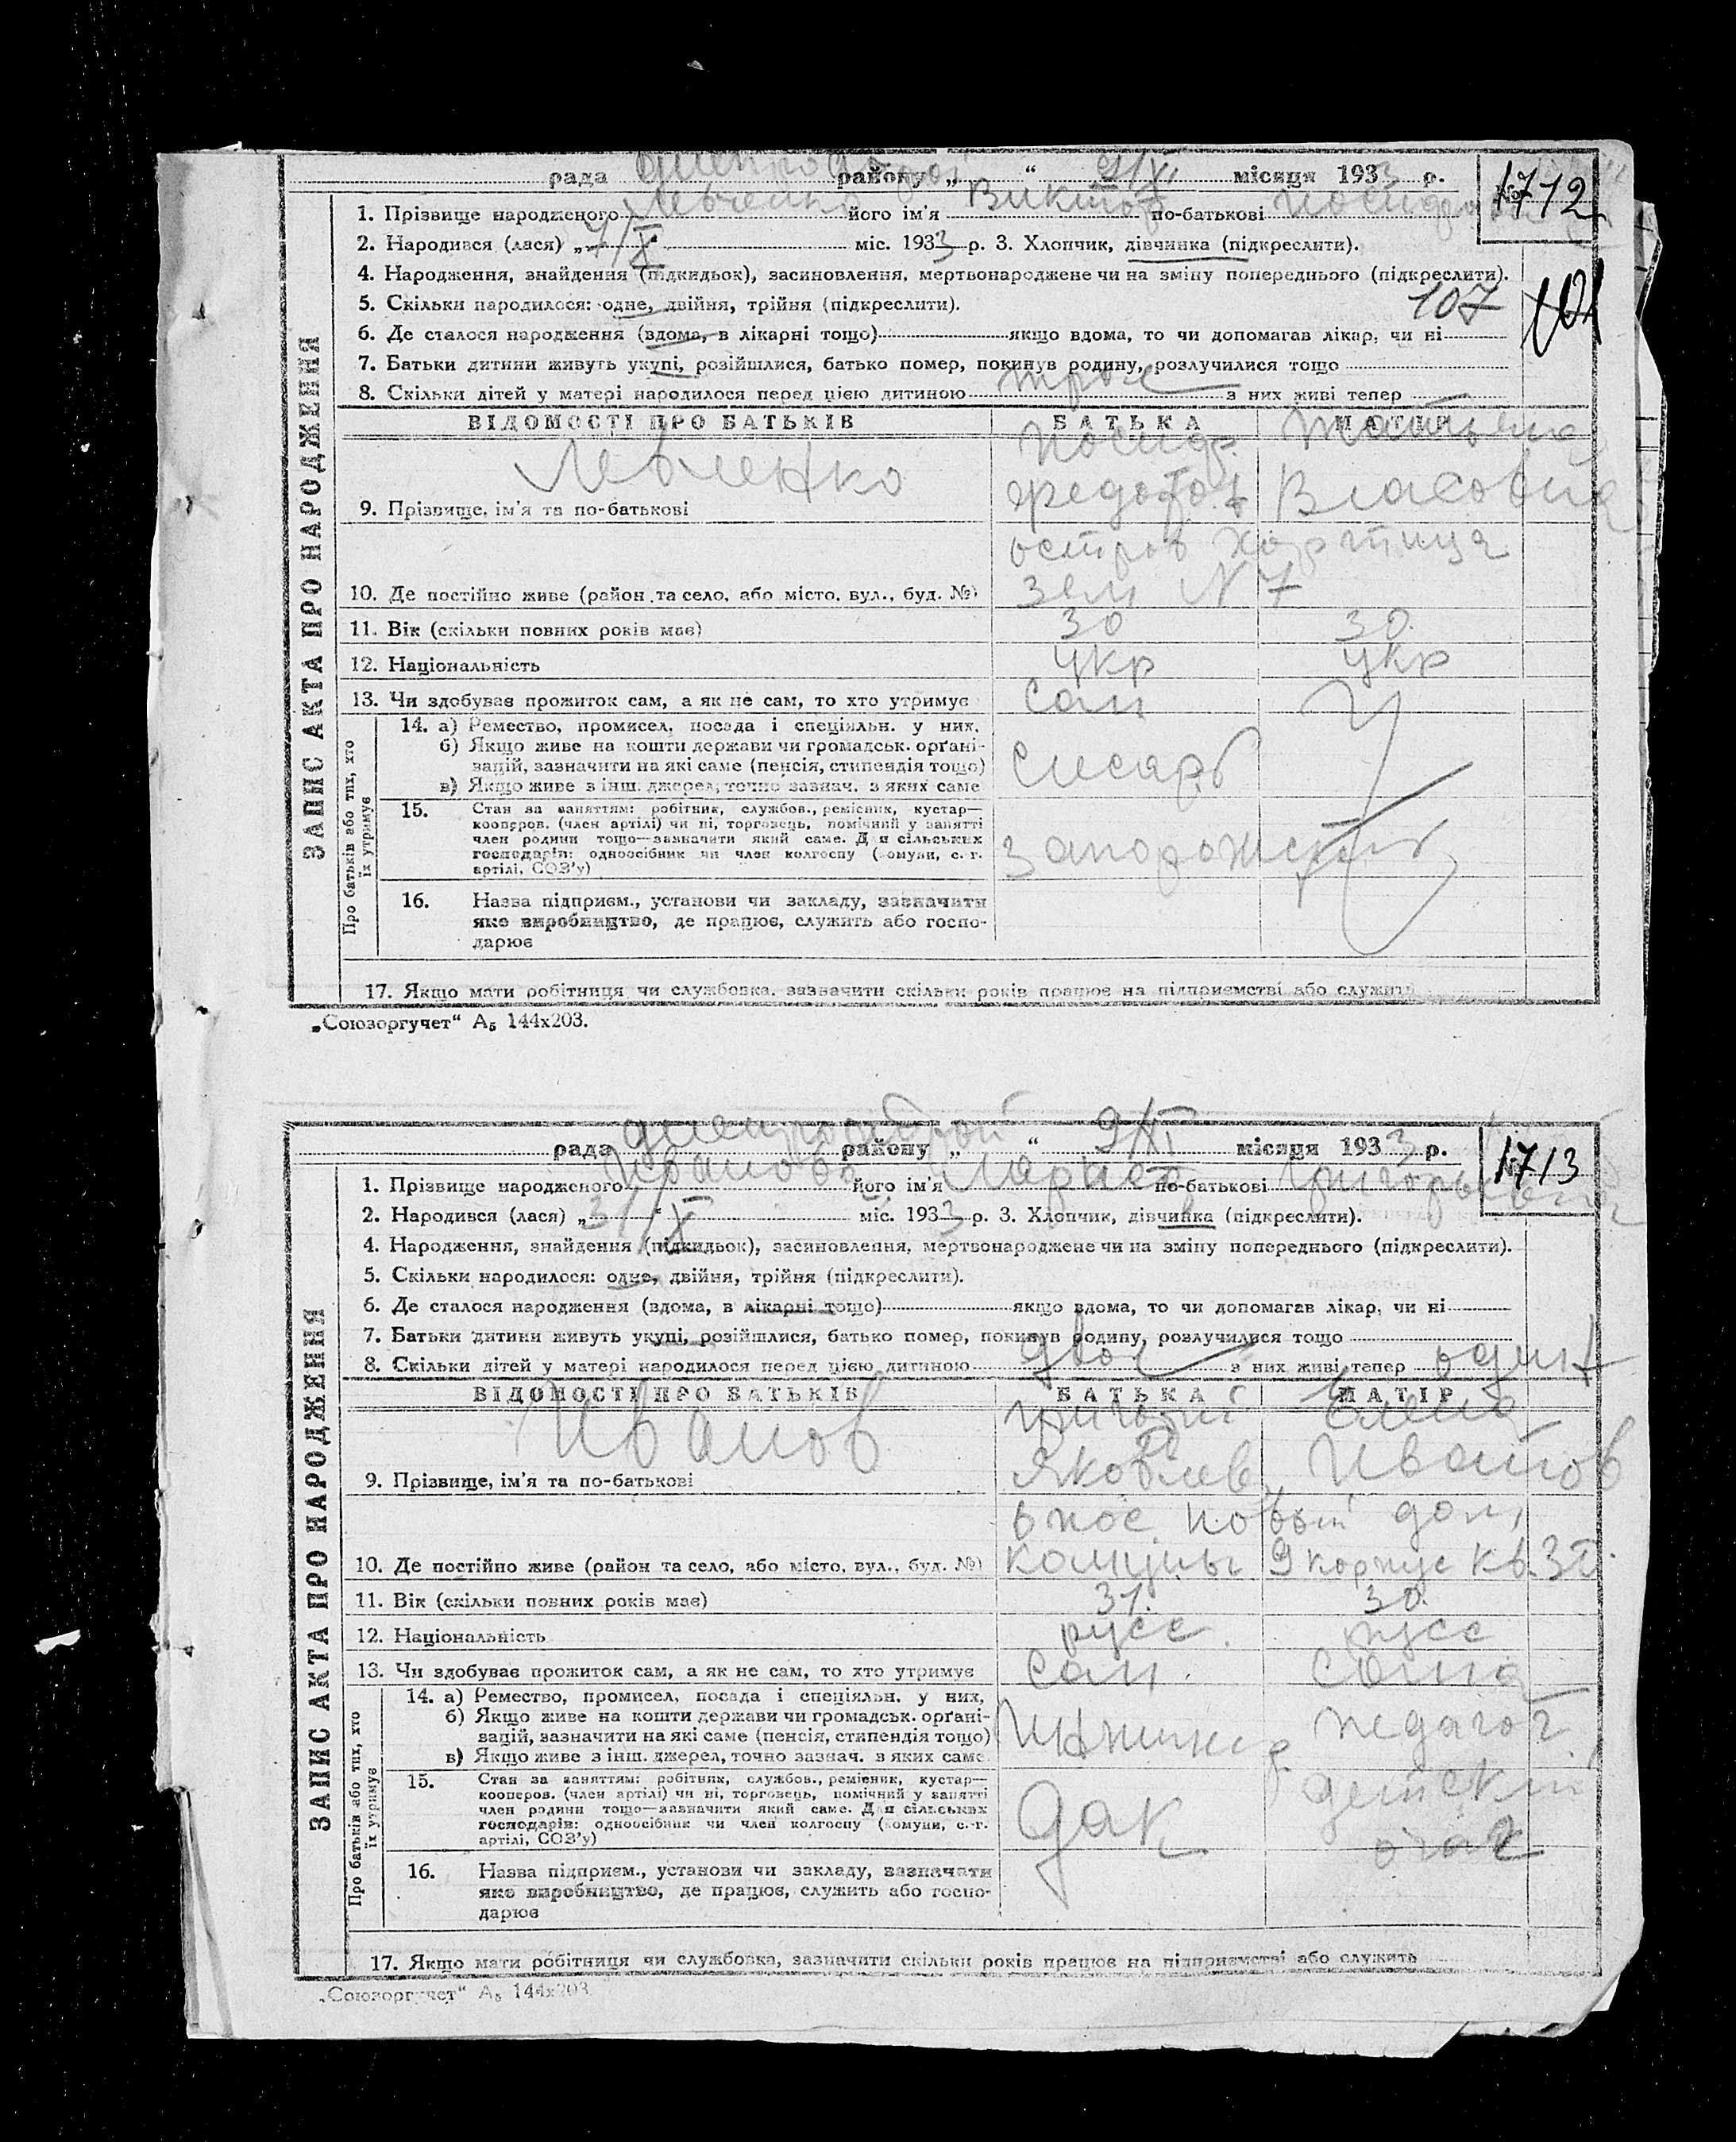 рада району „ “ 9/XI місяця 1933 р. № 1712
1. Прізвище народженого його ім'я Виктор по-батькові
2. Народився (лася) „7/X“ міс. 1933 р. 3. Хлопчик, дівчинка (підкреслити).
4. Народження, знайдення (підкидьок), засиновлення, мертвонароджене чи на зміну попереднього (підкреслити).
5. Скільки народилося: одне, двійня, трійня (підкреслити). 107
6. Де сталося народження (вдома, в лікарні тощо) якщо вдома, то чи допомагав лікар, чи ні
7. Батьки дитини живуть укупі, розійшлися, батько помер, покинув родину, розлучилися тощо
8. Скільки дітей у матері народилося перед цією дитиною трое з них живі тепер
ВІДОМОСТІ ПРО БАТЬКІВ БАТЬКА МАТІР
Левченко Татьяна
9. Прізвище, ім'я та по-батькові Федото Власовна
остров Хортица
10. Де постійно живе (район та село, або місто, вул., буд. №) зем N 7
11. Вік (скільки повних років має) 30 30
12. Національність укр укр
13. Чи здобуває прожиток сам, а як не сам, то хто утримує сам
ЗАПИС АКТА ПРО НАРОДЖЕННЯ
Про батьків або тих, хто
їх утримує
14. а) Ремество, промисел, посада і спеціяльн. у них.
б) Якщо живе на кошти держави чи громадськ. орґані-
зацій, зазначити на які саме (пенсія, стипендія тощо) слесарь
в) Якщо живе з інш. джерел, точно зазнач. з яких саме
15. Стан за заняттям: робітник, службов., ремісник, кустар—
кооперов. (член артілі) чи ні, торговець, помічний у занятті
член родини тощо—зазначити який саме. Для сільських
господарів: одноосібник чи член колгоспу (комуни, с.-г.
артілі, СОЗ'у)
16. Назва підприєм., установи чи закладу, зазначити
яке виробництво, де працює, служить або госпо-
дарює
17. Якщо мати робітниця чи службовка, зазначити скільки років працює на підприємстві або служить
„Союзоргучет“ А₅ 144х203.
рада району „ “ 9/XI місяця 1933 р. № 1713
1. Прізвище народженого Иванова його ім'я по-батькові Григорьевна
2. Народився (лася) „31/X“ міс. 1933 р. 3. Хлопчик, дівчинка (підкреслити).
4. Народження, знайдення (підкидьок), засиновлення, мертвонароджене чи на зміну попереднього (підкреслити).
5. Скільки народилося: одне, двійня, трійня (підкреслити).
6. Де сталося народження (вдома, в лікарні тощо) якщо вдома, то чи допомагав лікар, чи ні
7. Батьки дитини живуть укупі, розійшлися, батько помер, покинув родину, розлучилися тощо
8. Скільки дітей у матері народилося перед цією дитиною двое з них живі тепер один
ВІДОМОСТІ ПРО БАТЬКІВ БАТЬКА МАТІР
Иванов Григорий Елена
9. Прізвище, ім'я та по-батькові Яковлев Иванов
6 пос новый дом
10. Де постійно живе (район та село, або місто, вул., буд. №) комуны 9 корпус кв.
11. Вік (скільки повних років має) 31. 30.
12. Національність русс русс
13. Чи здобуває прожиток сам, а як не сам, то хто утримує сам сама
ЗАПИС АКТА ПРО НАРОДЖЕННЯ
Про батьків або тих, хто
їх утримує
14. а) Ремество, промисел, посада і спеціяльн. у них.
б) Якщо живе на кошти держави чи громадськ. орґані- педагог
зацій, зазначити на які саме (пенсія, стипендія тощо)
в) Якщо живе з інш. джерел, точно зазнач. з яких саме
15. Стан за заняттям: робітник, службов., ремісник, кустар—
кооперов. (член артілі) чи ні, торговець, помічний у занятті детский
член родини тощо—зазначити який саме. Для сільських
господарів: одноосібник чи член колгоспу (комуни, с.-г. дак
артілі, СОЗ'у) очаг
16. Назва підприєм., установи чи закладу, зазначити
яке виробництво, де працює, служить або госпо-
дарює
17. Якщо мати робітниця чи службовка, зазначити скільки років працює на підприємстві або служить
„Союзоргучет“ А₅ 144х203